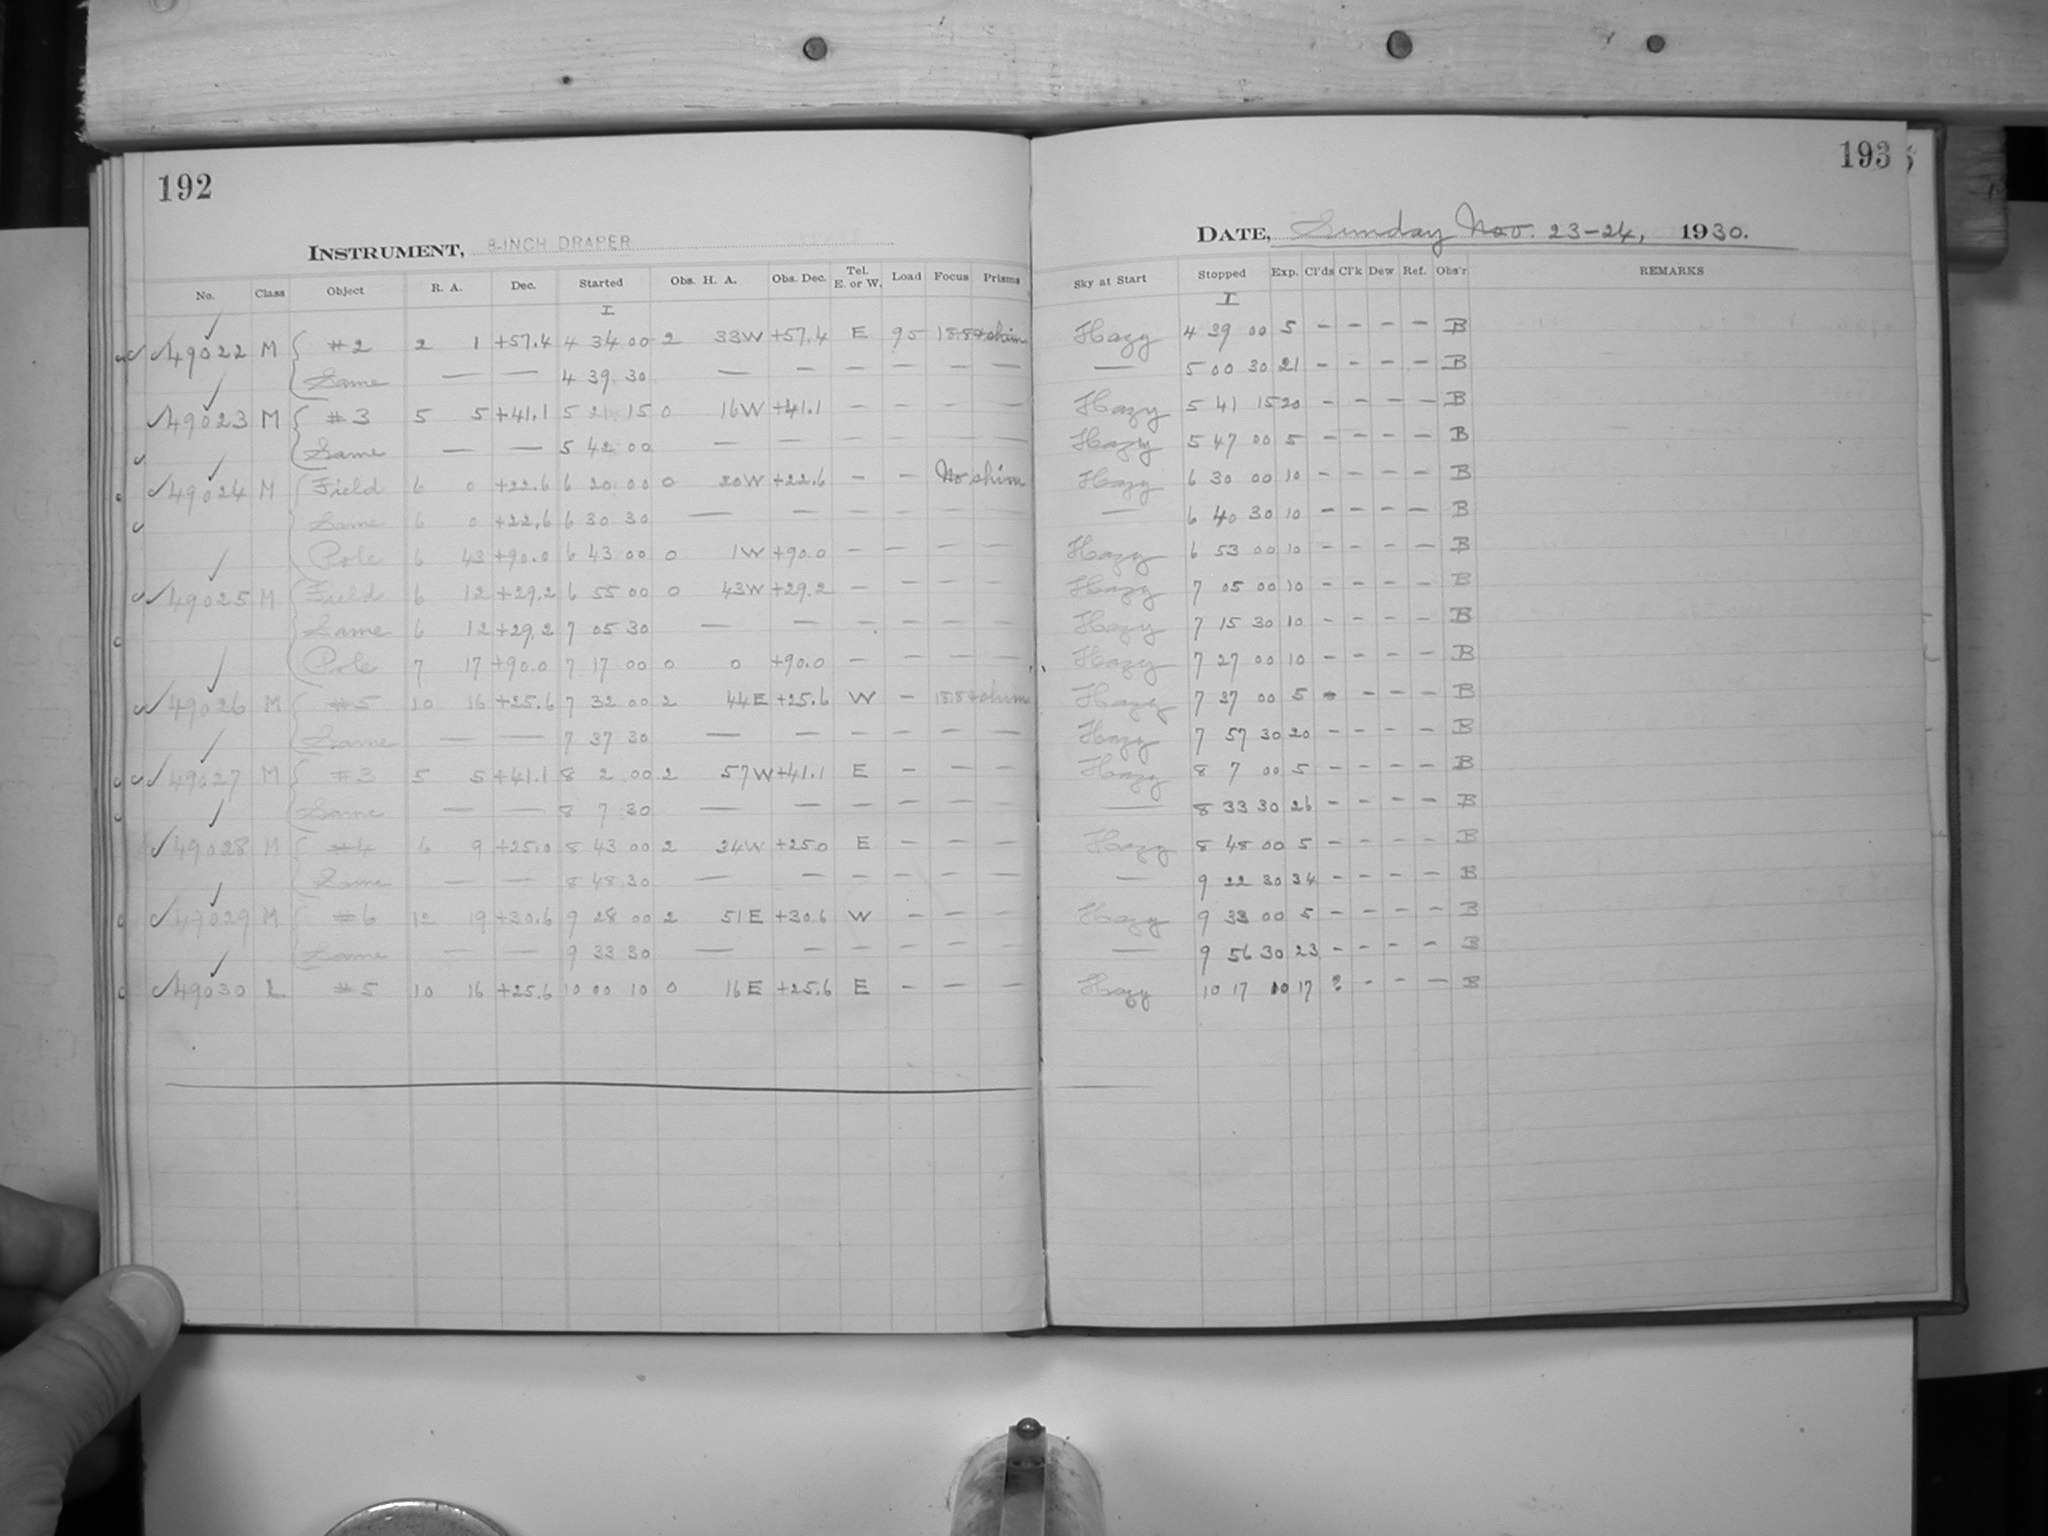 192
INSTRUMENT, 8-INCH DRAPER
No. Class Object R. A. Dec. Started Obs. H. A. Obs. Dec. Tel. E. or W. Load Focus Prisms
I
49022 M #2 2 1 +57.4 4 34 00 2 33W +57.4 E 95 18.8+shim
Same — — 4 39 30 — — — — — —
49023 M #3 5 5 +41.1 5 21 15 0 16W +41.1 — — — —
Same — — 5 42 00 — — — — — —
49024 M Field 6 0 +22.6 6 20 00 0 20W +22.6 — — No shim
Same 6 0 +22.6 6 30 30 — — — — — —
Pole 6 43 +90.0 6 43 00 0 1W +90.0 — — — —
49025 M Field 6 12 +29.2 6 55 00 0 43W +29.2 — — — —
Same 6 12 +29.2 7 05 30 — — — — — —
Pole 7 17 +90.0 7 17 00 0 0 +90.0 — — — —
49026 M #5 10 16 +25.6 7 32 00 2 44E +25.6 W — 18.8+shim
Same — — 7 37 30 — — — — — —
49027 M #3 5 5 +41.1 8 2 00 2 57W +41.1 E — — —
Same — — 8 7 30 — — — — — —
49028 M #4 6 9 +25.0 8 43 00 2 34W +25.0 E — — —
Same — — 8 48 30 — — — — — —
49029 M #6 12 19 +30.6 9 28 00 2 51E +30.6 W — — —
Same — — 9 33 30 — — — — — —
49030 L #5 10 16 +25.6 10 00 10 0 16E +25.6 E — — —
193
DATE, Sunday Nov. 23-24, 1930.
Sky at Start Stopped Exp. Cl'ds Cl'k Dew Ref. Obs'r REMARKS
I
Hazy 4 39 00 5 — — — — B
— 5 00 30 21 — — — — B
Hazy 5 41 15 20 — — — — B
Hazy 5 47 00 5 — — — — B
Hazy 6 30 00 10 — — — — B
— 6 40 30 10 — — — — B
Hazy 6 53 00 10 — — — — B
Hazy 7 05 00 10 — — — — B
Hazy 7 15 30 10 — — — — B
Hazy 7 27 00 10 — — — — B
Hazy 7 37 00 5 — — — — B
Hazy 7 57 30 20 — — — — B
Hazy 8 7 00 5 — — — — B
— 8 33 30 26 — — — — B
Hazy 8 48 00 5 — — — — B
— 9 22 30 34 — — — — B
Hazy 9 33 00 5 — — — — B
— 9 56 30 23 — — — — B
Hazy 10 17 10 17 ? — — — B